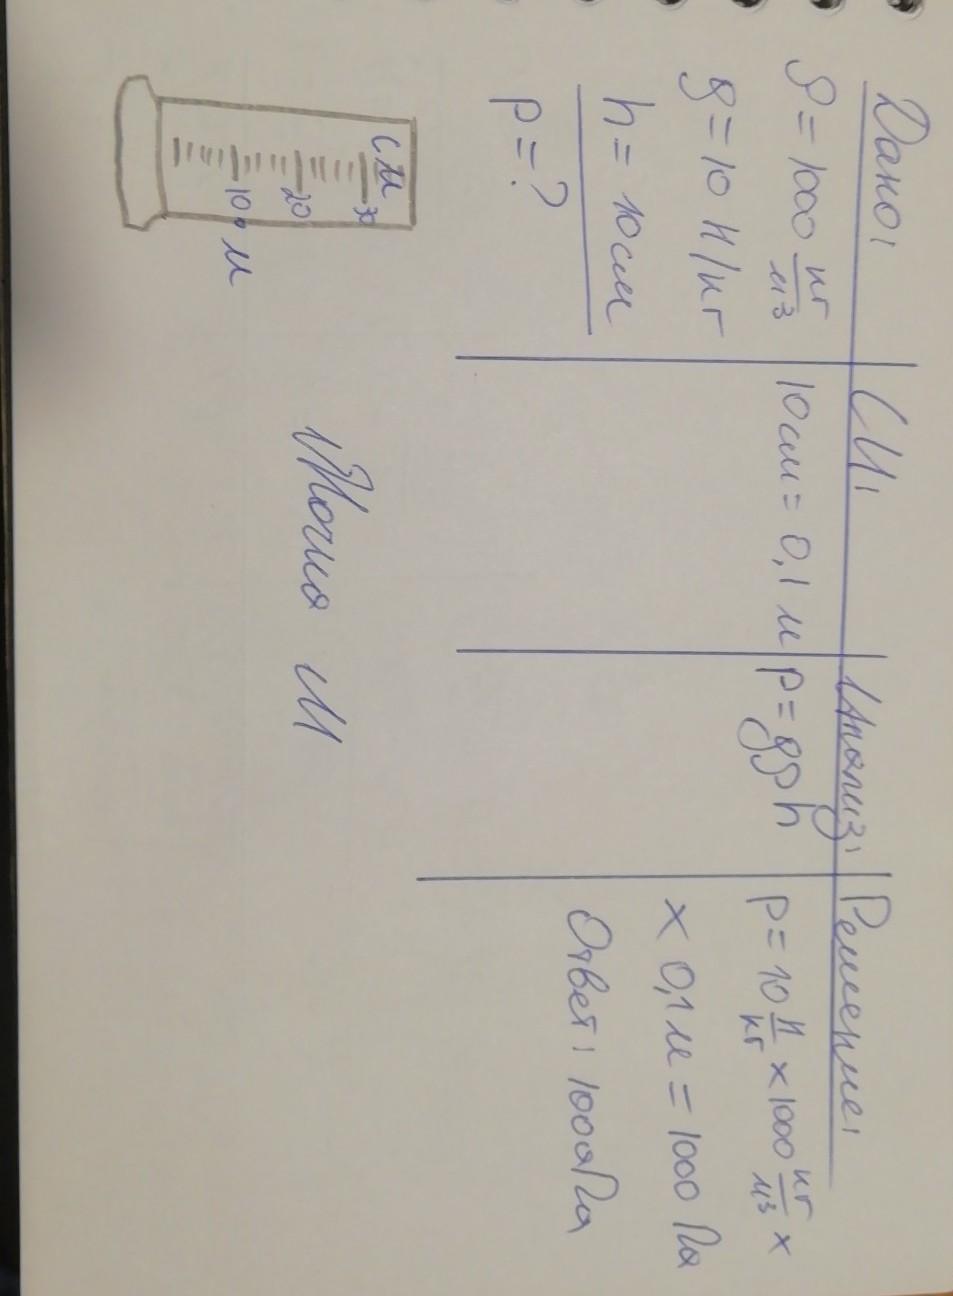 Дано:
ρ = 1000 кг/м3
g = 10 Н/кг
h = 10 см
p = ?
СИ:
10см = 0,1 м
Анализ:
p = gρh
Решение:
p = 10 Н/кг x 1000 кг/м3 x
x 0,1 м = 1000 Па
Ответ: 1000Па
см
20
10
м
М